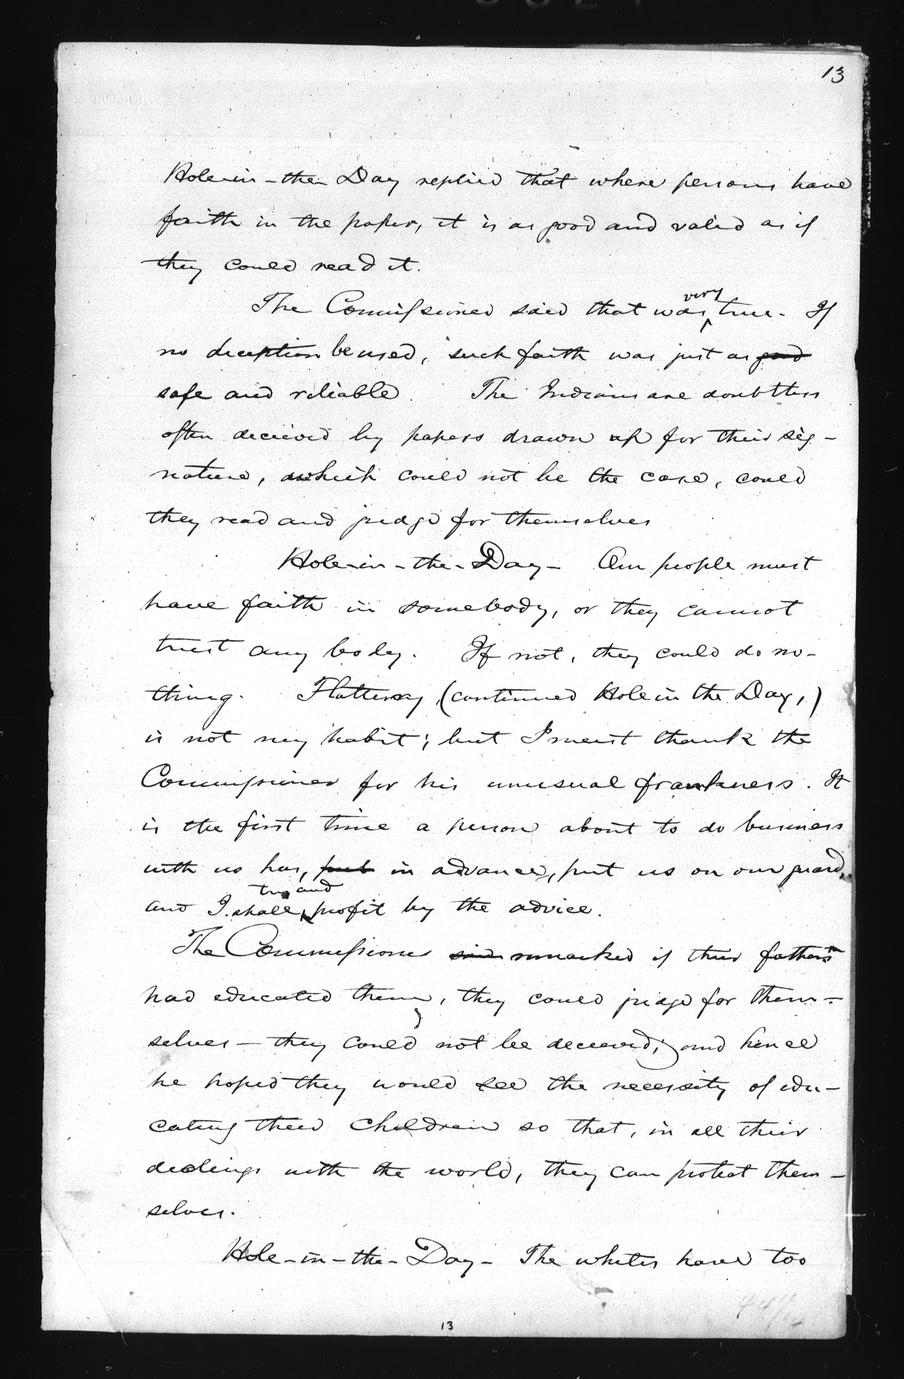 13
Hole-in-the Day replied that where persons have
faith in the paper, it is as good and valid as if
they could read it.
The Commissioner said that was very true. If
no deception be used, such faith was just as good
safe and reliable. The Indians are doubtless
often deceived by papers drawn up for their sig-
nature, which could not be the case, could
they read and judge for themselves
Hole-in-the-Day- Our people must
have faith in somebody, or they cannot
trust any body. If not, they could do no-
thing. Flattery, (continued Hole in the Day,)
is not my habit; but I must thank the
Commissioner for his unusual frankness. It
is the first time a person about to do business
with us has, put in advance, put us on our guard,
and I shall try and profit by the advice.
The Commissioner said remarked if their fathers
had educated them, they could judge for them-
selves - they could not be deceived; and hence
he hoped they would see the necessity of edu-
cating their children so that, in all their
dealings with the world, they can protect them-
selves.
Hole-in-the-Day- The whites have too
13